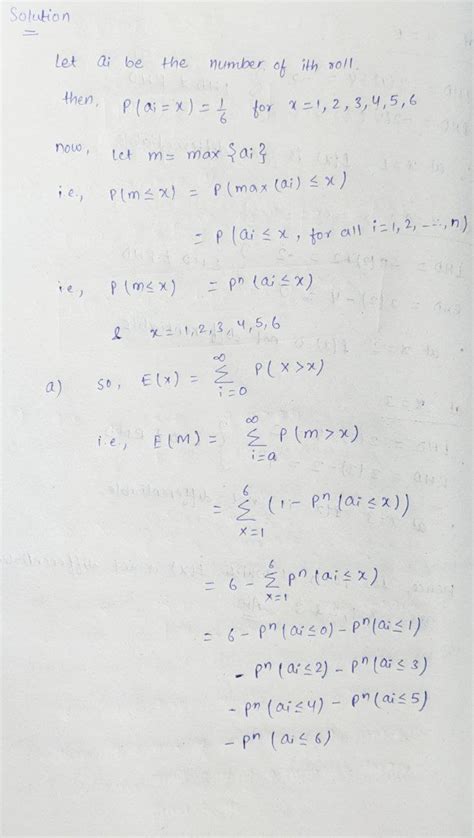 Solution
Let ai be the number of ith roll.
then, P(ai = x) = 1/6 for x = 1, 2, 3, 4, 5, 6
now, let m = max {ai}
i.e., P(m ≤ x) = P(max (ai) ≤ x)
= P(ai ≤ x, for all i = 1, 2, ---, n)
ie, P(m ≤ x) = pⁿ (ai ≤ x)
& x = 1, 2, 3, 4, 5, 6
a) so, E(x) = ∞ Σ i=0 P(x > x)
i.e, E(M) = ∞ Σ i=a P(m > x)
= 6 Σ x=1 (1 - pⁿ (ai ≤ x))
= 6 - 6 Σ x=1 pⁿ (ai ≤ x)
= 6 - pⁿ (ai ≤ 0) - pⁿ (ai ≤ 1)
- pⁿ (ai ≤ 2) - pⁿ (ai ≤ 3)
- pⁿ (ai ≤ 4) - pⁿ (ai ≤ 5)
- pⁿ (ai ≤ 6)